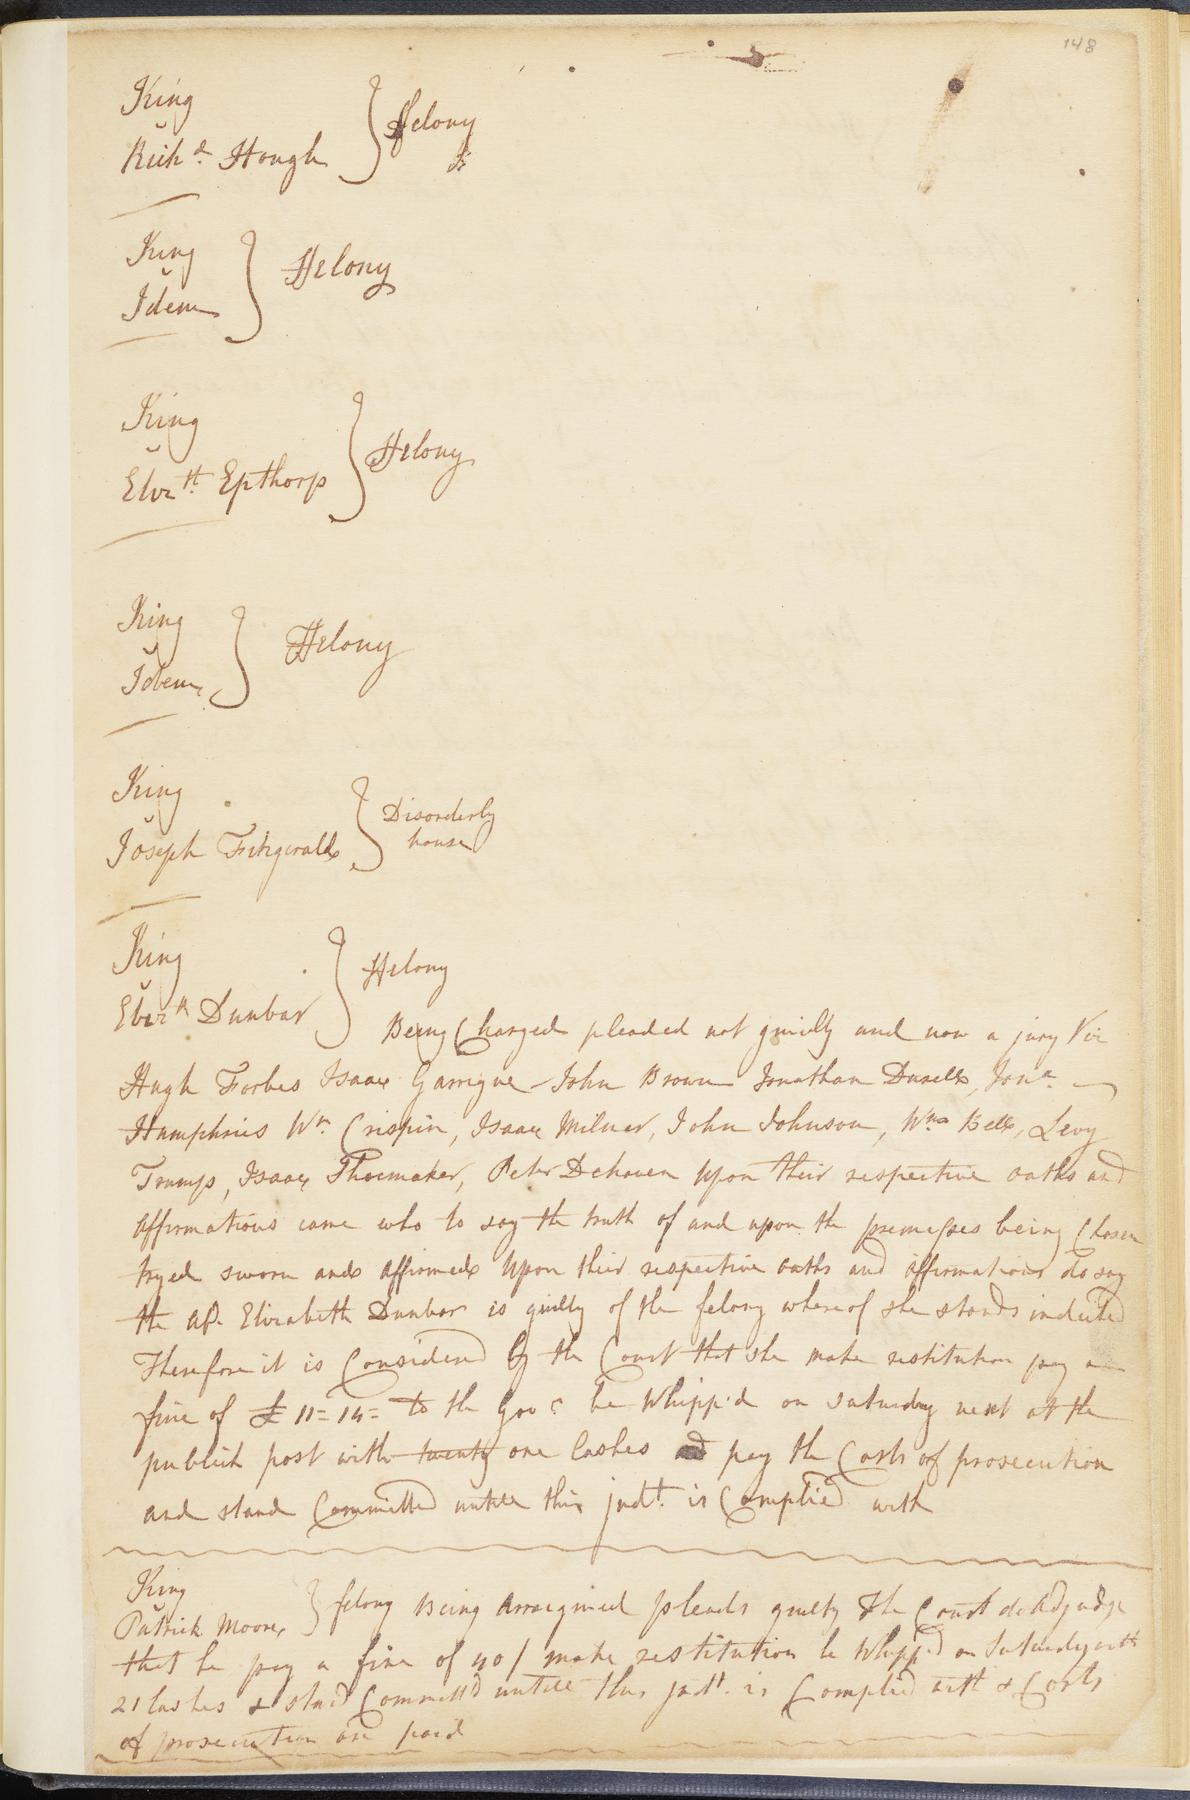 148
King
v
Rich^d. Hough } Felony
King
v
Idem } Felony
King
v
Eliz^th. Epthorp } Felony
King
v
Idem } Felony
King
v
Joseph Fitzgerald } Disorderly
house
King
v
Eliz^th Dunbar } Felony
Being Charged pleaded not guilty and now a jury Viz
Hugh Forbes Isaac Garrigue John Brown Jonathan Durell, Jon^a.
Humphries W^m. Crispin, Isaac Milner, John Johnson, W^m Bell, Levy
Trump, Isaac Shoemaker, Peter Dehaven Upon their respective oaths and
affirmations came who to say the truth of and upon the premisses being Chosen
tryed sworn and affirmed Upon their respective oaths and affirmations do say
the Elizabeth Dunbar is guilty of the felony whereof she stands indicted
Therefore it is Considered by the Court that she make restitution pay a
fine of £ 11=14= to the Gov^r be Whipp'd on saturday next at the
publick post with twenty one lashes and pay the Costs of prosecution
and stand Committed untill this judt. is Complied with
King
v
Patrick Moore } felony Being Arraigned pleads guilty The Court do Adjudge
that he pay a fine of 40/ make restitution be Whipp'd on Saturday with
21 lashes & stand Committd untill this judt. is Complied with & Costs
of prosecution are paid